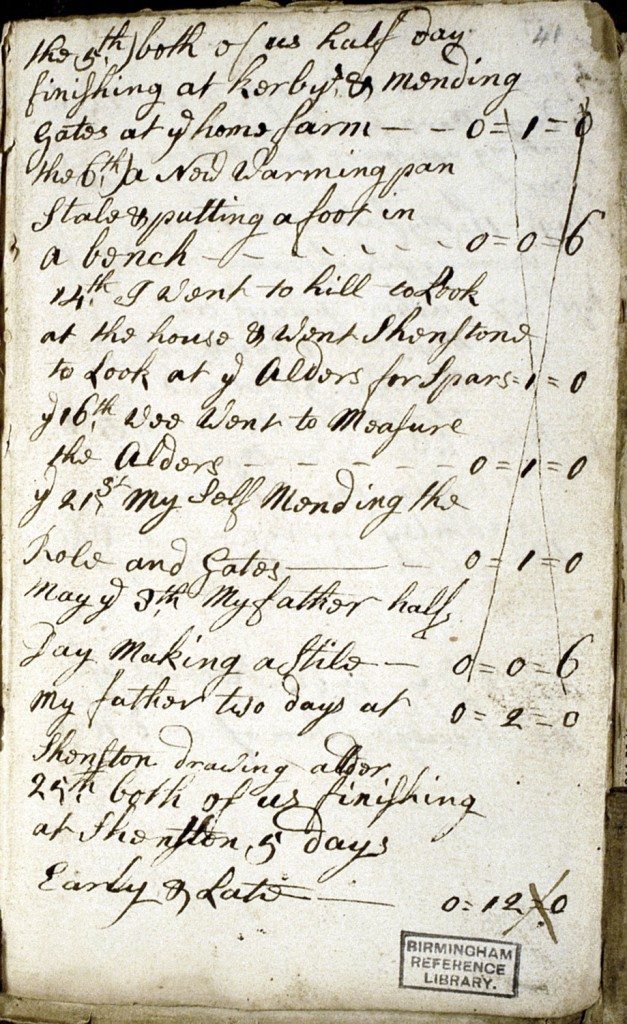 41
the 5th) both of us half day
finishing at Kerbys & mending
Gates at ye home farm — — 0=1=0
the 6th) a New Warming pan
Stale & putting a foot in
a bench - - - - - - 0=0=6
14th I Went to hill to Look
at the house & Went Shenstone
to Look at ye Alders for Spars=1=0
ye 16th Wee Went to Measure
the Alders - - - - - - 0=1=0
ye 21st My Self Mending the
Role and Gates — - 0=1=0
May ye 3th My father half
Day Making a Stile — 0=0=6
My father two days at 0=2=0
Shenston drawing alder
25th both of us finishing
at Shenston 5 days
Early & Late — 0=12=0
BIRMINGHAM
REFERENCE
LIBRARY.